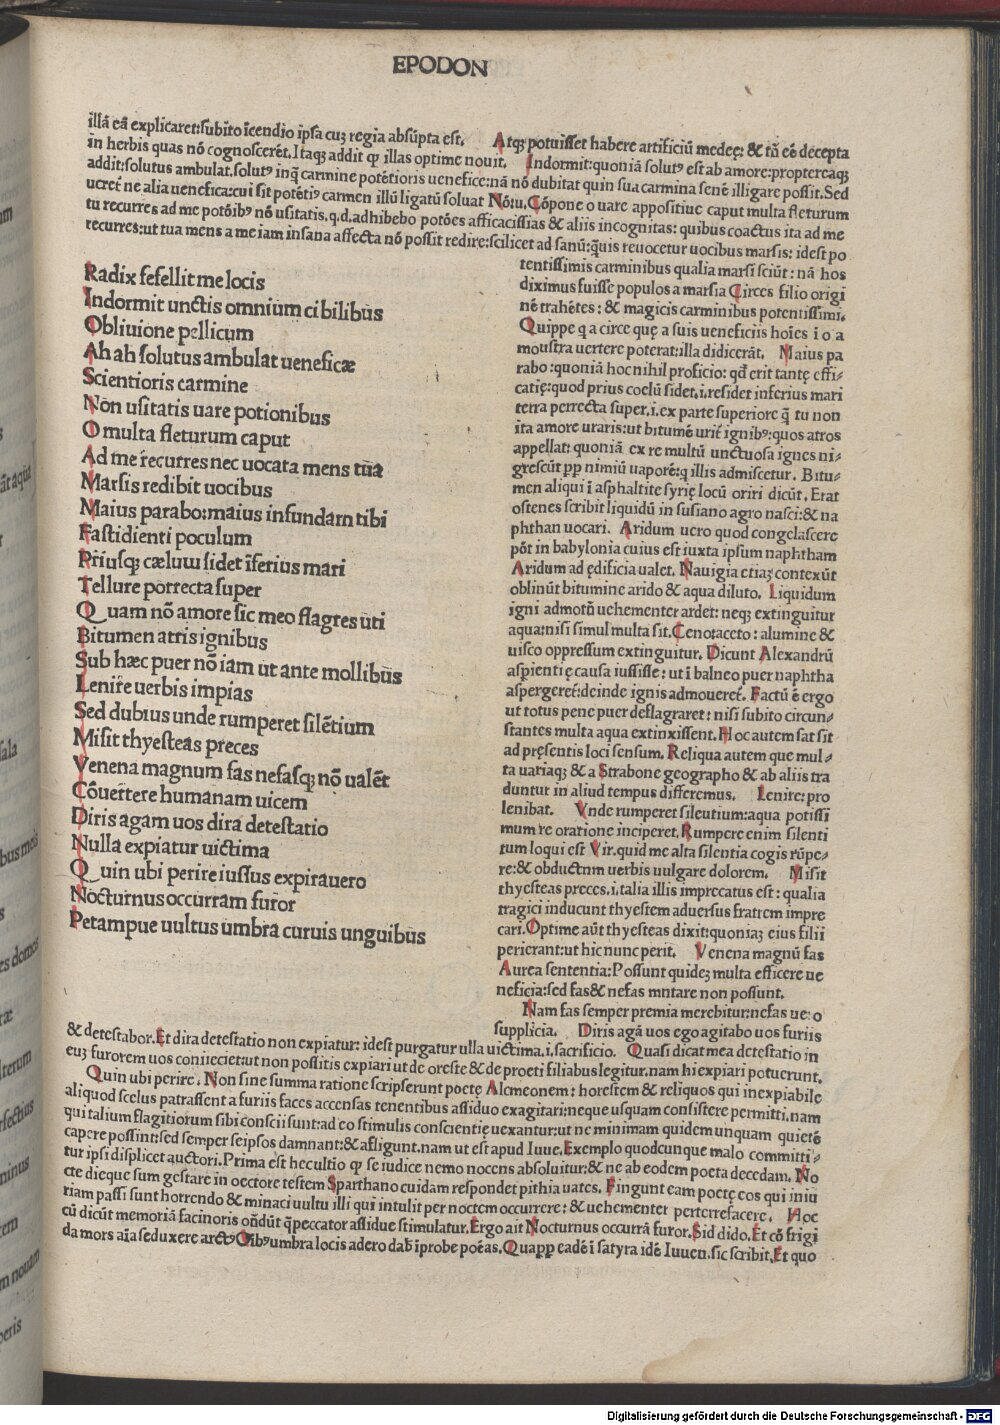 EPODON
illā eā explicaret:subito īcendio ipsa cuȝ regia absūpta est. Atqȝ potuisset habere artificiū medeę: & tā eē decepta
in herbis quas nō cognosceret.Itaqȝ addit ꝙ illas optime nouit. Indormit:quoniā solutꝰ est ab amore:proptereaqȝ
addit:solutus ambulat.solutꝰ inq̄ carmine potētioris uenefice:nā nō dubitat quin sua carmina senē illigare possit.Sed
ueret̄ ne alia uenefica:cui sit potētiꝰ carmen illū ligatū soluat Nō.u.Cōpone o uare appositiue caput multa fleturum
tu recurres ad me potōibꝰ nō usitatis.q.d.adhibebo potōes afficacissias & aliis incognitas: quibus coactus ita ad me
recurres:ut tua mens a me iam insana affecta nō possit redire:scilicet ad sanū:q̄uis reuocetur uocibus marsis: idest po
Radix fefellit me locis
Indormit unctis omnium cibilibus
Obliuione pellicum
Ah ah solutus ambulat ueneficæ
Scientioris carmine
Non usitatis uare potionibus
O multa fleturum caput
Ad me recurres nec uocata mens tua
Marsis redibit uocibus
Maius parabo:maius infundam tibi
Fastidienti poculum
Priusqȝ cælum sidet īferius mari
Tellure porrecta super
Quam nō amore sic meo flagres uti
Bitumen atris ignibus
Sub hæc puer nō iam ut ante mollibus
Lenire uerbis impias
Sed dubius unde rumperet silētium
Misit thyesteas preces
Venena magnum fas nefasqȝ nō ualēt
Cōuertere humanam uicem
Diris agam uos dira detestatio
Nulla expiatur uictima
Quin ubi perire iussus expirauero
Nocturnus occurram furor
Petampue uultus umbra curuis unguibus
tentissimis carminibus qualia marsi sciūt: nā hos
diximus fuisse populos a marsia Circes filio origi
nē trahētes: & magicis carminibus potentissimi.
Quippe q a circe quę a suis ueneficiis hoīes ī o a
moustra uertere poterat:illa didicerāt. Maius pa
rabo:quoniā hoc nihil proficio: qd̄ erit tantę effi-
catię:quod prius coelū sidet.i.residet inferius mari
terra perrecta super.i.ex parte superiore q̄ tu non
ita amore uraris:ut bitumē urit̄ ignibꝰ:quos atros
appellat: quoniā ex re multū unctuosa ignes ni-
grescūt pp nimiū uaporē:q illis admiscetur. Bitu-
men aliqui ī asphaltite syrię locū oriri dicūt. Erat
ostenes scribit liquidū in susiano agro nasci:& na
phthan uocari. Aridum uero quod congelascere
pōt in babylonia cuius est iuxta ipsum naphtham
Aridum ad ędificia ualet. Nauigia etiaȝ contexūt
oblinūt bitumine arido & aqua diluto. Liquidum
igni admotū uehementer ardet: neqȝ extinguitur
aqua:nisi simul multa sit. Cenotaceto: alumine &
uisco oppressum extinguitur. Dicunt Alexandrū
aspientię causa iussisse: ut ī balneo puer naphtha
aspergeret:deinde ignis admoueret̄. Factū ē ergo
ut totus pene puer deflagraret: nisi subito circun-
stantes multa aqua extinxissent. Hoc autem sat sit
ad pręsentis loci sensum. Reliqua autem que mul-
ta uariaqȝ & a Strabone geographo & ab aliis tra
duntur in aliud tempus differemus. Lenire: pro
lenibat. Vnde rumperet sileutium:aqua potissi
mum re oratione inciperet. Rumpere enim silenti
tum loqui est Vir.quid me alta silentia cogis rūpe-
re:& obductnm uerbis uulgare dolorem. Misit
thyesteas preces.i.talia illis imprecatus est: qualia
tragici inducunt thyestem aduersus fratrem impre
cari.Optime aūt thyesteas dixit:quoniaȝ eius filii
perierant:ut hic nunc perit. Venena magnū fas
Aurea sententia:Possunt quideȝ multa efficere ue
neficia:sed fas & nefas mntare non possunt.
Nam fas semper premia merebitur:nefas ue: o
supplicia. Diris agā uos ego agitabo uos furiis
& detestabor.Et dira detestatio non expiatur: idest purgatur ulla uictima.i.sacrificio. Quasi dicat mea detestatio in
euȝ furorem uos coniiciet:ut non possitis expiari ut de oreste & de proeti filiabus legitur.nam hi expiari potuerunt.
Quin ubi perire. Non sine summa ratione scripserunt poetę Alcmeonem: horestem & reliquos qui inexpiabile
aliquod scelus patrassent a furiis faces accensas tenentibus assiduo exagitari:neque usquam consistere permitti.nam
qui talium flagitiorum sibi conscii sunt:ad eo stimulis conscientię uexantur:ut ne minimam quidem unquam quietē
capere possint:sed semper seipsos damnant:& affligunt.nam ut est apud Iuue.Exemplo quodcunque malo committi-
tur ipsi displicet auctori.Prima est hecultio ꝙ se iudice nemo nocens absoluitur:& ne ab eodem poeta decedam. No
cte dieque sum gestare in oectore testem Sparthano cuidam respondet pithia uates. Fingunt eam poetę eos qui iniu
riam passi sunt horrendo & minaci uultu illi qui intulit per noctem occurrere: & uehementer perterrefacere. Hoc
cū dicūt memoriā facinoris oñdūt q̄peccator assidue stimulatur.Ergo ait Nocturnus occurrā furor.Sid dido.Et cō frigi
da mors aīa seduxere arctꝰ Oibꝰ umbra locis adero dab̄ īprobe poēas.Quapp eadē ī satyra idē Iuuen.sic scribit.Et quo
Digitalisierung gefördert durch die Deutsche Forschungsgemeinschaft - DFG